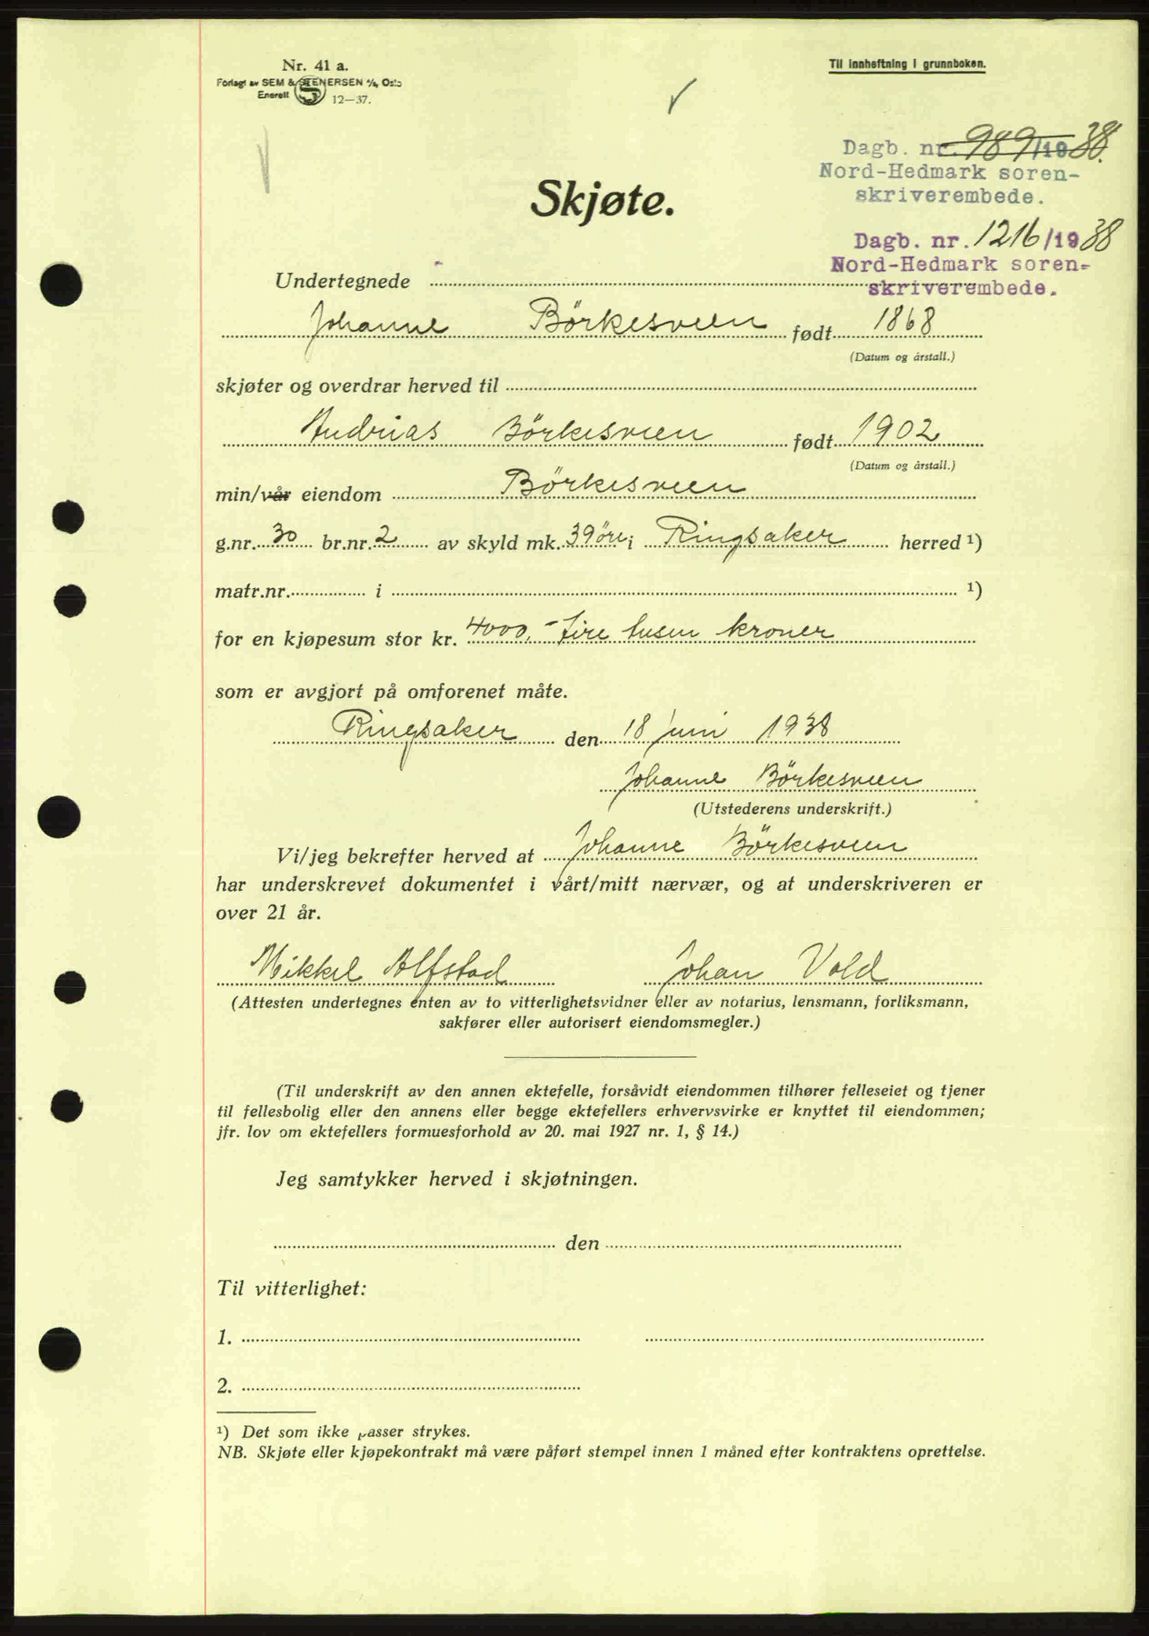 Nr. 41 a.
Forlagt av SEM & STENERSEN A/S, Oslo
Enerett 12—37.
Til innheftning i grunnboken.
Dagb. nr. 989/1938.
Nord-Hedmark soren-
skriverembede.
Skjøte.
Dagb. nr. 1216/1938
Nord-Hedmark soren-
skriverembede.
Undertegnede
Johanne Börkesveen født 1868
(Datum og årstall.)
skjøter og overdrar herved til
Andreas Börkesveen født 1902
(Datum og årstall.)
min/vår eiendom Börkesveen
g.nr. 30 br.nr. 2 av skyld mk. 39 öre i Ringsaker herred ¹)
matr.nr. i ¹)
for en kjøpesum stor kr. 4000,- fire tusen kroner
som er avgjort på omforenet måte.
Ringsaker den 18 juni 1938
Johanne Börkesveen
(Utstederens underskrift.)
Vi/jeg bekrefter herved at Johanne Börkesveen
har underskrevet dokumentet i vårt/mitt nærvær, og at underskriveren er
over 21 år.
Mikkel Alfstad Johan Vold
(Attesten undertegnes enten av to vitterlighetsvidner eller av notarius, lensmann, forliksmann,
sakfører eller autorisert eiendomsmegler.)
(Til underskrift av den annen ektefelle, forsåvidt eiendommen tilhører felleseiet og tjener
til fellesbolig eller den annens eller begge ektefellers erhvervsvirke er knyttet til eiendommen;
jfr. lov om ektefellers formuesforhold av 20. mai 1927 nr. 1, § 14.)
Jeg samtykker herved i skjøtningen.
den
Til vitterlighet:
1.
2.
¹) Det som ikke passer strykes.
NB. Skjøte eller kjøpekontrakt må være påført stempel innen 1 måned efter kontraktens oprettelse.